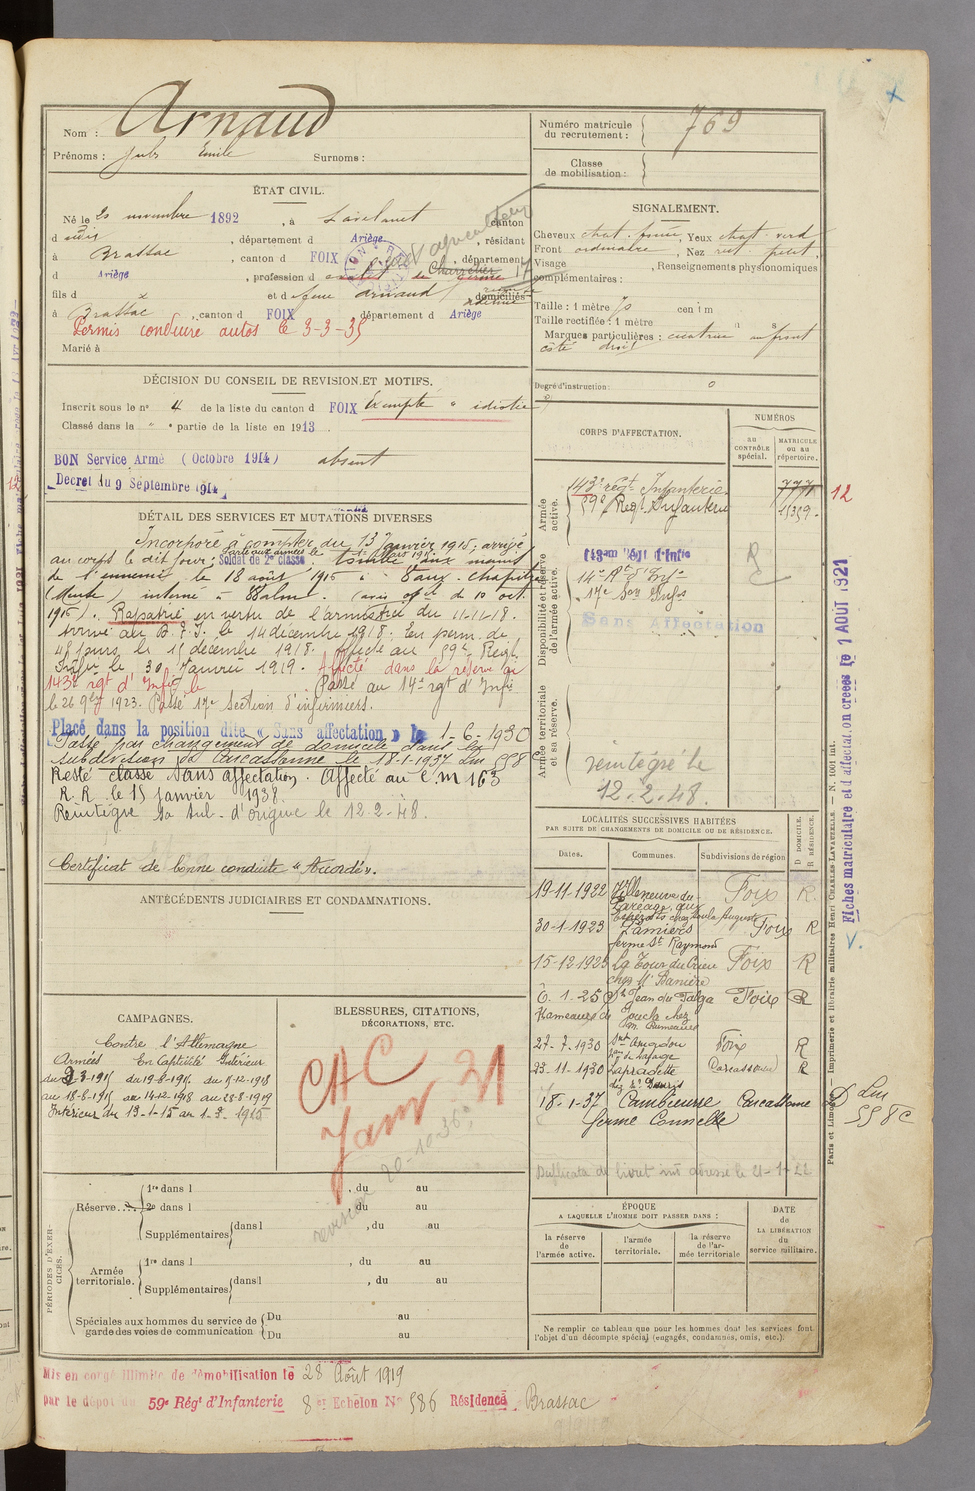 Nom : Arnaud
Prénoms : Jules Emile Surnoms :
ÉTAT CIVIL.
Né le 20 novembre 1892, à Lavelanet, canton
d udit, département d Ariège, résidant
à Brassac, canton d FOIX, département
d Ariège, profession de
cultivateur
fils d x et d feue Arnaud domiciliés
à Brassac, canton d FOIX, département d Ariège
Permis conduire autos le 3-3-35
Marié à
DÉCISION DU CONSEIL DE REVISION ET MOTIFS.
Inscrit sous le n° 4 de la liste du canton d FOIX Exempté " idiotie "
Classé dans la " " partie de la liste en 1913.
BON Service Armé (Octobre 1914) absent
Decret du 9 Septembre 1914
DÉTAIL DES SERVICES ET MUTATIONS DIVERSES
Incorporé à compter du 13 Janvier 1915, arrivé
au corps le dit jour, Soldat de 2e classe. tombé aux mains
de l'ennemi le 18 août 1915 à Vaux-Chapitre
(Meuse) interné à (avis offel de 10 oct.
1915). Rapatrié en vertu de l'armistice du 11-11-18.
Arrivé au D. le 14 décembre 1918. En perm. de
jours le 15 décembre 1918. Affecté au 59e Regt
Infie le 30 Janvier 1919. Affecté dans la réserve au
143e rgt d'Infie le Passé au 14e rgt d'Infie
le 26 9bre 1923. Passé 17e Section d'infirmiers.
Placé dans la position dite « Sans affectation » le 1-6-1930
Passé par changement de domicile dans la
subdivision de Carcassonne le 18-1-1937 Lm 558 C
Resté classé Sans affectation. Affecté au C.M 163
R.R. le 15 janvier 1938.
Réintégré sa sub. d'origine le 12.2.48.
Certificat de bonne conduite « Accordé ».
ANTÉCÉDENTS JUDICIAIRES ET CONDAMNATIONS.
CAMPAGNES.
Contre l'Allemagne
Armées En Captivité Intérieur
du 2-3-1915 du 19-8-1915 du 15-12-1918
au 18-8-1915 au 14-12-1918 au 28-8-1919
Intérieur du 13-1-15 au 1-3-1915
BLESSURES, CITATIONS,
DÉCORATIONS, ETC.
CAC
Janv. 31
revision 20-10-36
PÉRIODES D'EXERCICES.
Réserve... 1re dans l , du au
2e dans l , du au
Supplémentaires dans l , du au
Armée territoriale. 1re dans l , du au
Supplémentaires dans l , du au
Spéciales aux hommes du service de Du au
garde des voies de communication Du au
Mis en congé illimité de démobilisation le 28 Août 1919
par le dépôt du 59e Régt d'Infanterie 8e Echelon N° 586 Résidence Brassac
Numéro matricule
du recrutement : 769
Classe
de mobilisation :
SIGNALEMENT.
Cheveux chat. foncé, Yeux chat. verd
Front ordinaire, Nez rect petit,
Visage , Renseignements physionomiques
complémentaires :
Taille : 1 mètre 70 centim
Taille rectifiée : 1 mètre
Marques particulières : cicatrice au front
côté droit
Degré d'instruction : 0
CORPS D'AFFECTATION.
NUMÉROS
AU
CONTRÔLE
spécial.
MATRICULE
OU AU
répertoire.
Armée
active.
143e régt Infanterie. 777 12
59e Regt Infanterie 15359.
Disponibilité et réserve
de l'armée active.
14e Rt d'Infie
17e Son Infrs
Sans Affectation
Armée territoriale
et sa réserve.
réintégré le
12.2.48.
LOCALITÉS SUCCESSIVES HABITÉES
PAR SUITE DE CHANGEMENTS DE DOMICILE OU DE RÉSIDENCE.
Dates. Communes. Subdivisions de région D DOMICILE. R RÉSIDENCE.
19-11-1922 Villeneuve du Foix R
Pareage aux
chez Soula Auguste
30-1-1923 Pamiers Foix R
ferme St Raymond
15-12-1923 La Tour du Crieu Foix R
chez Mr Banière
6.1.25 St Jean du Falga Foix R
27-7-1930 Foix R
23-11-1930 Lapradelle Carcassonne R
18-1-37 Cambieure Carcassonne D Lm
ferme Connelle 558 C
Duplicata de livret adressé le 21-1-22
ÉPOQUE
A LAQUELLE L'HOMME DOIT PASSER DANS :
DATE
de
LA LIBÉRATION
du
service militaire.
la réserve
de
l'armée active.
l'armée
territoriale.
la réserve
de l'armée territoriale
Ne remplir ce tableau que pour les hommes dont les services font
l'objet d'un décompte spécial (engagés, condamnés, omis, etc.).
Fiches matriculaire et d'affectation créées le 1 AOUT 1921
Paris et Limoges — Imprimerie et librairie militaires Henri CHARLES-LAVAUZELLE. — N. 1001 int.